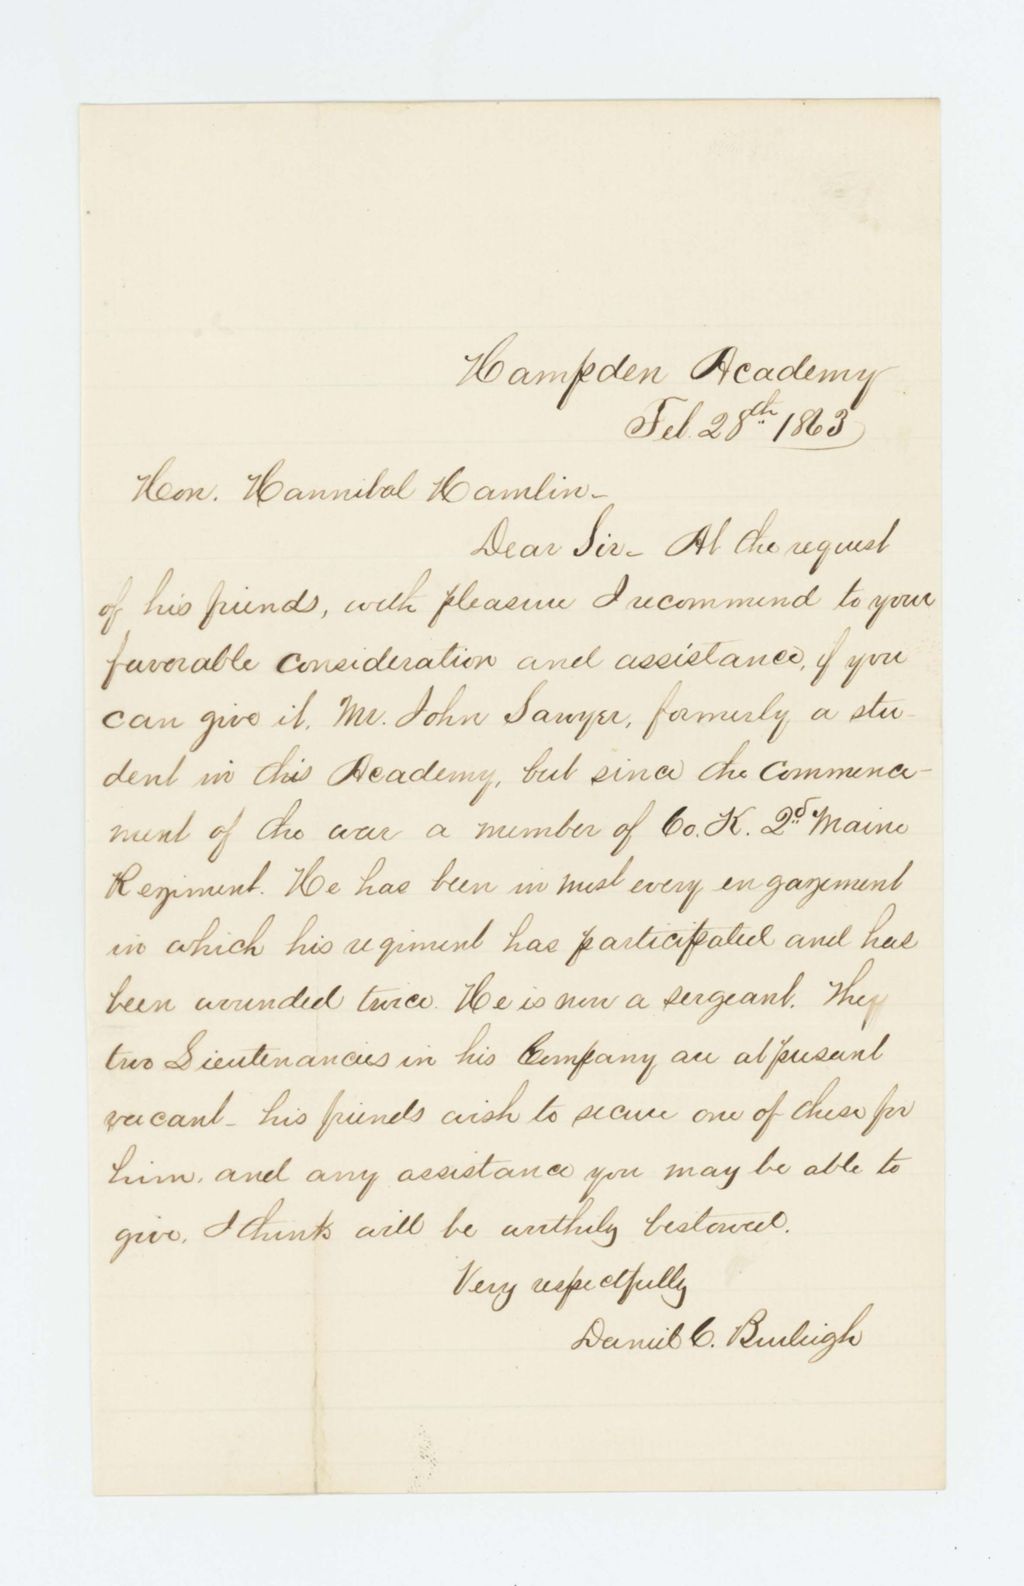 Hampden Academy
Feb. 28th 1863
Hon. Hannibal Hamlin-
Dear Sir- At the request
of his friends, with pleasure I recommend to your
favorable consideration and assistance, if you
can give it, Mr. John Sawyer, formerly a stu-
dent in this Academy, but since the commence-
ment of the war a member of Co. K. 2d Maine
Regiment. He has been in most every engagement
in which his regiment has participated and has
been wounded twice. He is now a sergeant. They
two Lieutenancies in his Company are at present
vacant- his friends wish to secure one of these for
him, and any assistance you may be able to
give, I think will be worthily bestowed.
Very respectfully
Daniel C. Burleigh